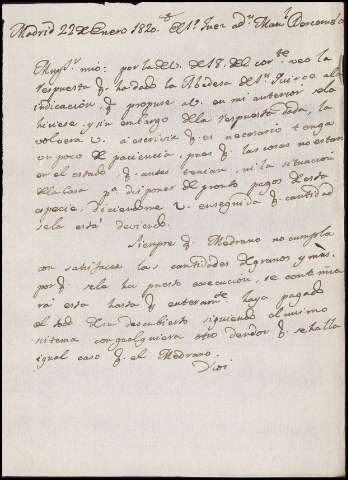 Madrid 22 de Enero 1820. El Sr Juez adr. Manl Descomba
Muy Sr. mio: por la de V. de 18. del corte. veo la
respuesta q. ha dado la Abadesa de Sn Quirce a la
indicación q. propuse a V. en mi anterior se la
hiciese, y sin embargo de la respuesta dada, la
volvera V. a escrivir q. es necesario tenga
un poco de paciencia, pues q. las cosas no estan
en el estado, q. antes tenian, ni la situación
de la Casa pa. disponer de pronto pagos de esta
especie, diciendome V. enseguida q. cantidad
se la está deviendo.
Siempre q. Medrano no cumpla
con satisfacer las cantidades de granos y mrs.
porq. se la ha puesto execución, se continua
rá esta hasta q. enteramte. haya pagado
el todo de su descubierto siguiendo el mismo
sistema con qualquiera otro deudor q. se halla
igual caso q. el Medrano.
Dios